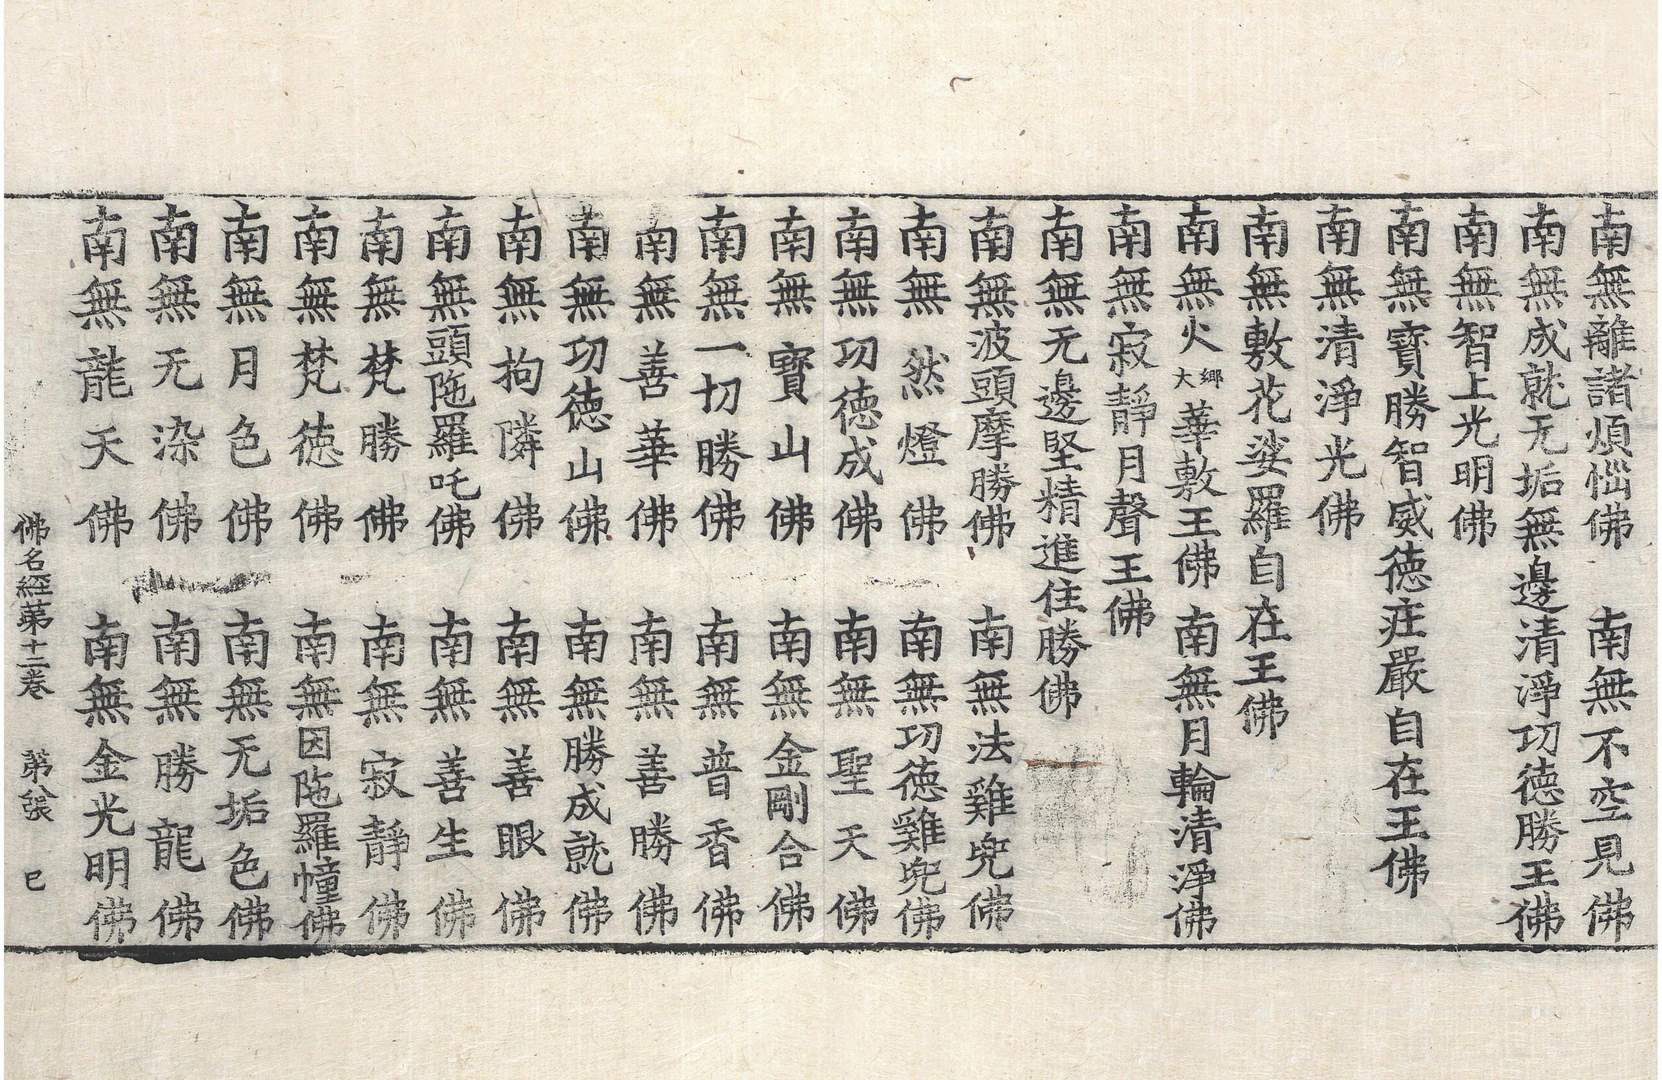 南無離諸煩惱佛　南無不空見佛
南無成就无垢無邊清淨功德勝王佛
南無智上光明佛
南無寶勝智威德莊嚴自在王佛
南無清淨光佛
南無敷花娑羅自在王佛
南無火大鄉華敷王佛　南無月輪清淨佛
南無寂靜月聲王佛
南無无邊堅精進住勝佛
南無波頭摩勝佛　南無法雞兜佛
南無然燈佛　南無功德雞兜佛
南無功德成佛　南無聖天佛
南無寶山佛　南無金剛合佛
南無一切勝佛　南無普香佛
南無善華佛　南無善勝佛
南無功德山佛　南無勝成就佛
南無拘隣佛　南無善眼佛
南無頭陁羅吒佛　南無善生佛
南無梵勝佛　南無寂靜佛
南無梵德佛　南無因陁羅幢佛
南無月色佛　南無无垢色佛
南無无染佛　南無勝龍佛
南無龍天佛　南無金光明佛
佛名經第十二卷　第八張　巳